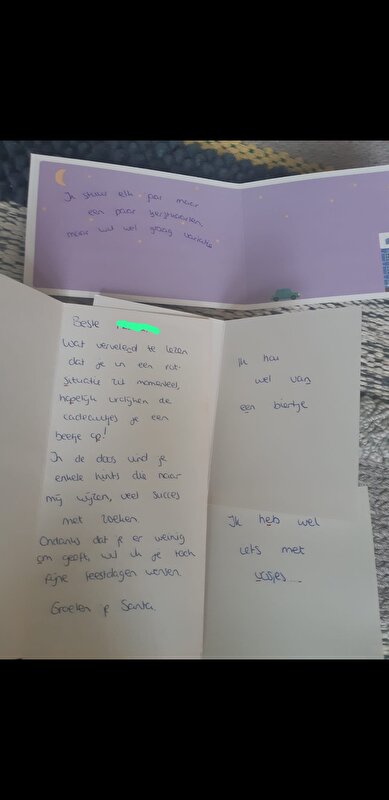 Ik stuur elk jaar maar
een paar kerstkaarten,
maar wil wel graag variatie
Beste
Wat vervelend te lezen
dat je in een rot-
situatie zit momenteel,
hopelijk vrolijken de
cadeautjes je een
beetje op!
In de doos vind je
enkele hints die naar
mij wijzen, veel succes
met zoeken.
Ondanks dat je er weinig
om geeft, wil ik je toch
fijne feestdagen wensen.
Groeten je Santa.
Ik hou
wel van
een biertje
Ik heb wel
iets met
vosjes...